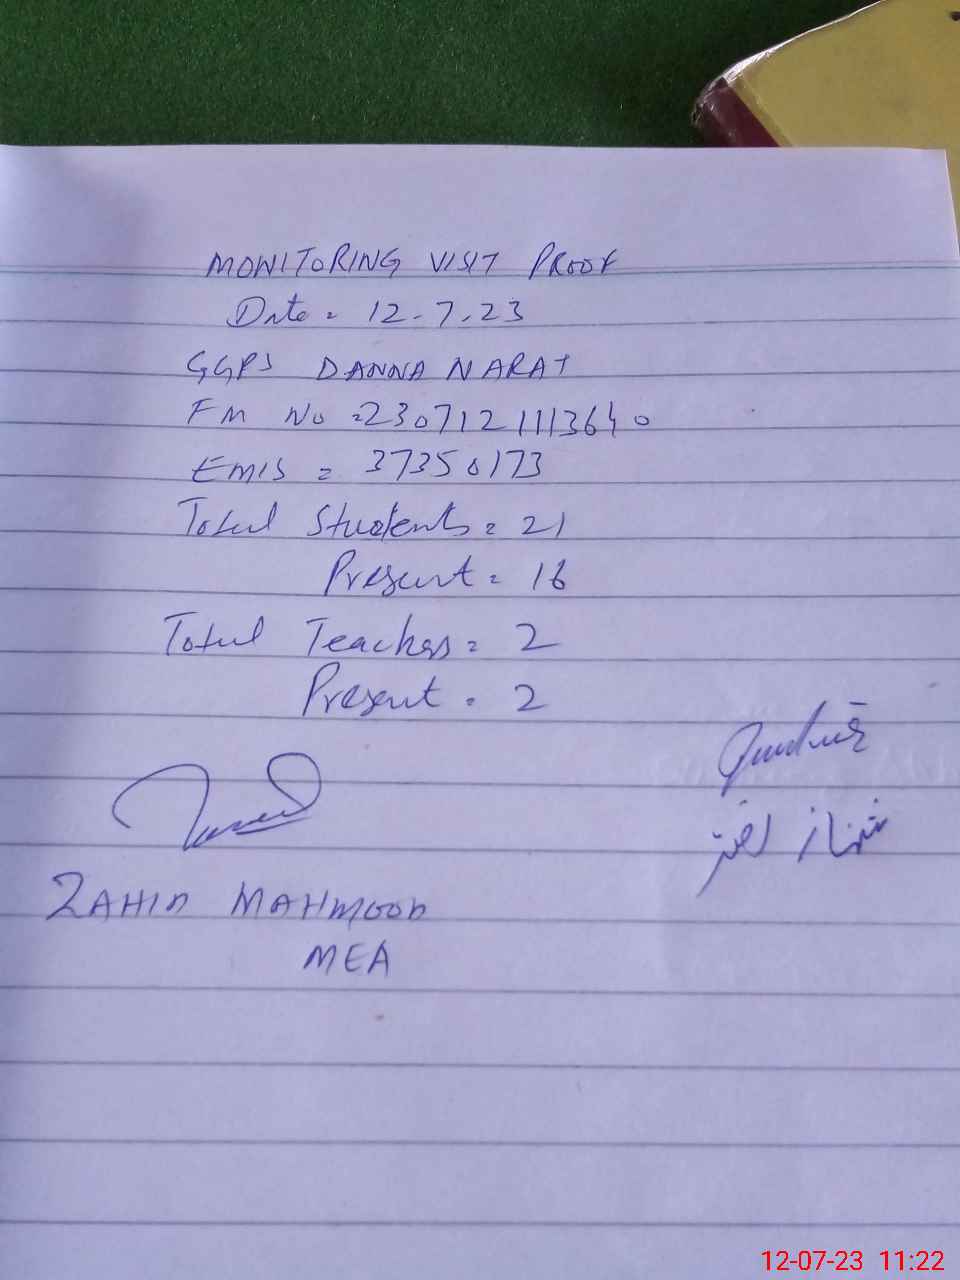 MONITORING VISIT PROOF
Date = 12-7-23
GGPS DANNA NARAT
FM No = 2307121113640
EMIS = 37350173
Total Students = 21
Present = 16
Total Teachers = 2
Present = 2
شہناز اختر
ZAHID MAHMOOD
MEA
12-07-23 11:22